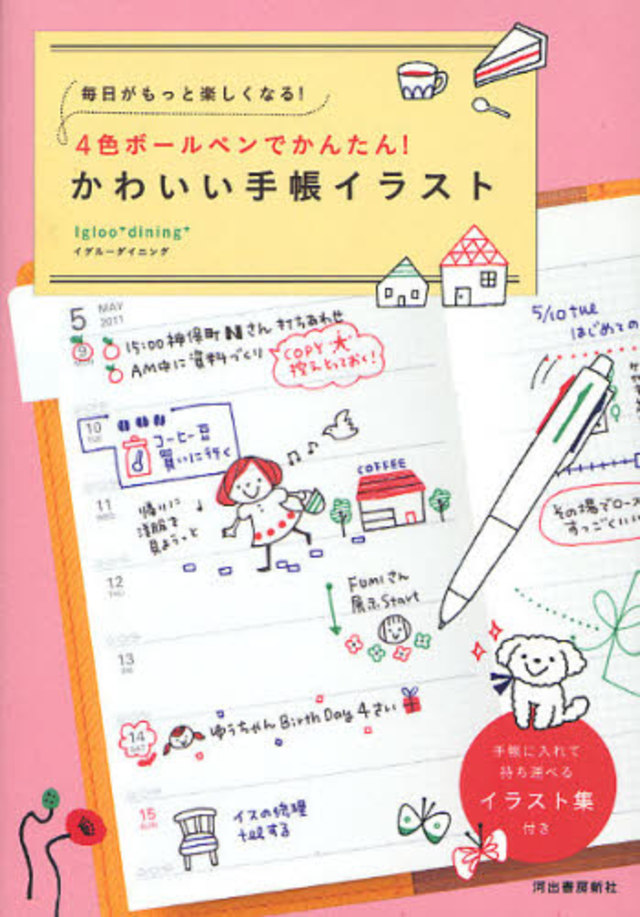 毎日がもっと楽しくなる!
4色ボールペンでかんたん!
かわいい手帳イラスト
Igloo*dining*
イグルーダイニング
5 MAY
2011
9
15:00 神保町Nさん打ちあわせ
AM中に資料づくり
COPY
控えとっておく!
10
TUE
コーヒー豆
買いに行く
11
WED
帰りに
洋服を
見ようっと
COFFEE
12
THU
Fumiさん
展示Start
13
FRI
14
SAT
ゆうちゃん Birth Day 4さい
15
SUN
イスの修理
telする
5/10 tue
はじめての
その場でロー
すっごくいい
手帳に入れて
持ち運べる
イラスト集
付き
河出書房新社